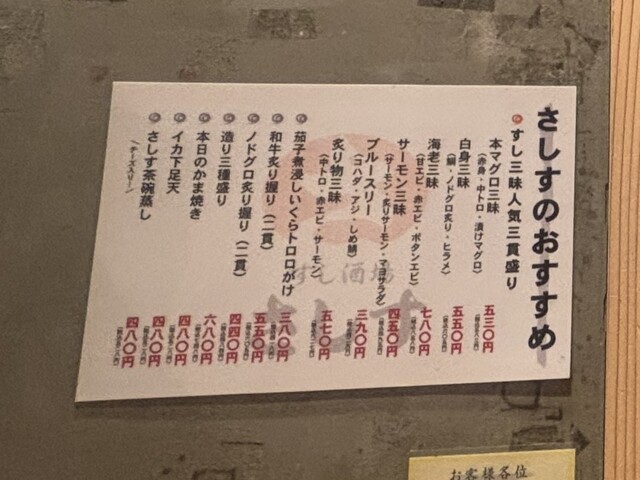 さしすのおすすめ
すし三昧人気三貫盛り
本マグロ三昧
（赤身・中トロ・漬けマグロ）
五三〇円
白身三昧
（鯛・ノドグロ炙り・ヒラメ）
五五〇円
海老三昧
（甘エビ・赤エビ・ボタンエビ）
七八〇円
サーモン三昧
（サーモン・炙りサーモン・マヨサラダ）
四五〇円
ブルースリー
（コハダ・アジ・しめ鯖）
三九〇円
炙り物三昧
（中トロ・赤エビ・サーモン）
五七〇円
茄子煮浸しいくらトロロがけ
三八〇円
和牛炙り握り（二貫）
五五〇円
ノドグロ炙り握り（二貫）
四四〇円
造り三種盛り
六八〇円
本日のかま焼き
四八〇円
イカ下足天
四八〇円
さしす茶碗蒸し
四八〇円
すし酒場
さしす
お客様各位